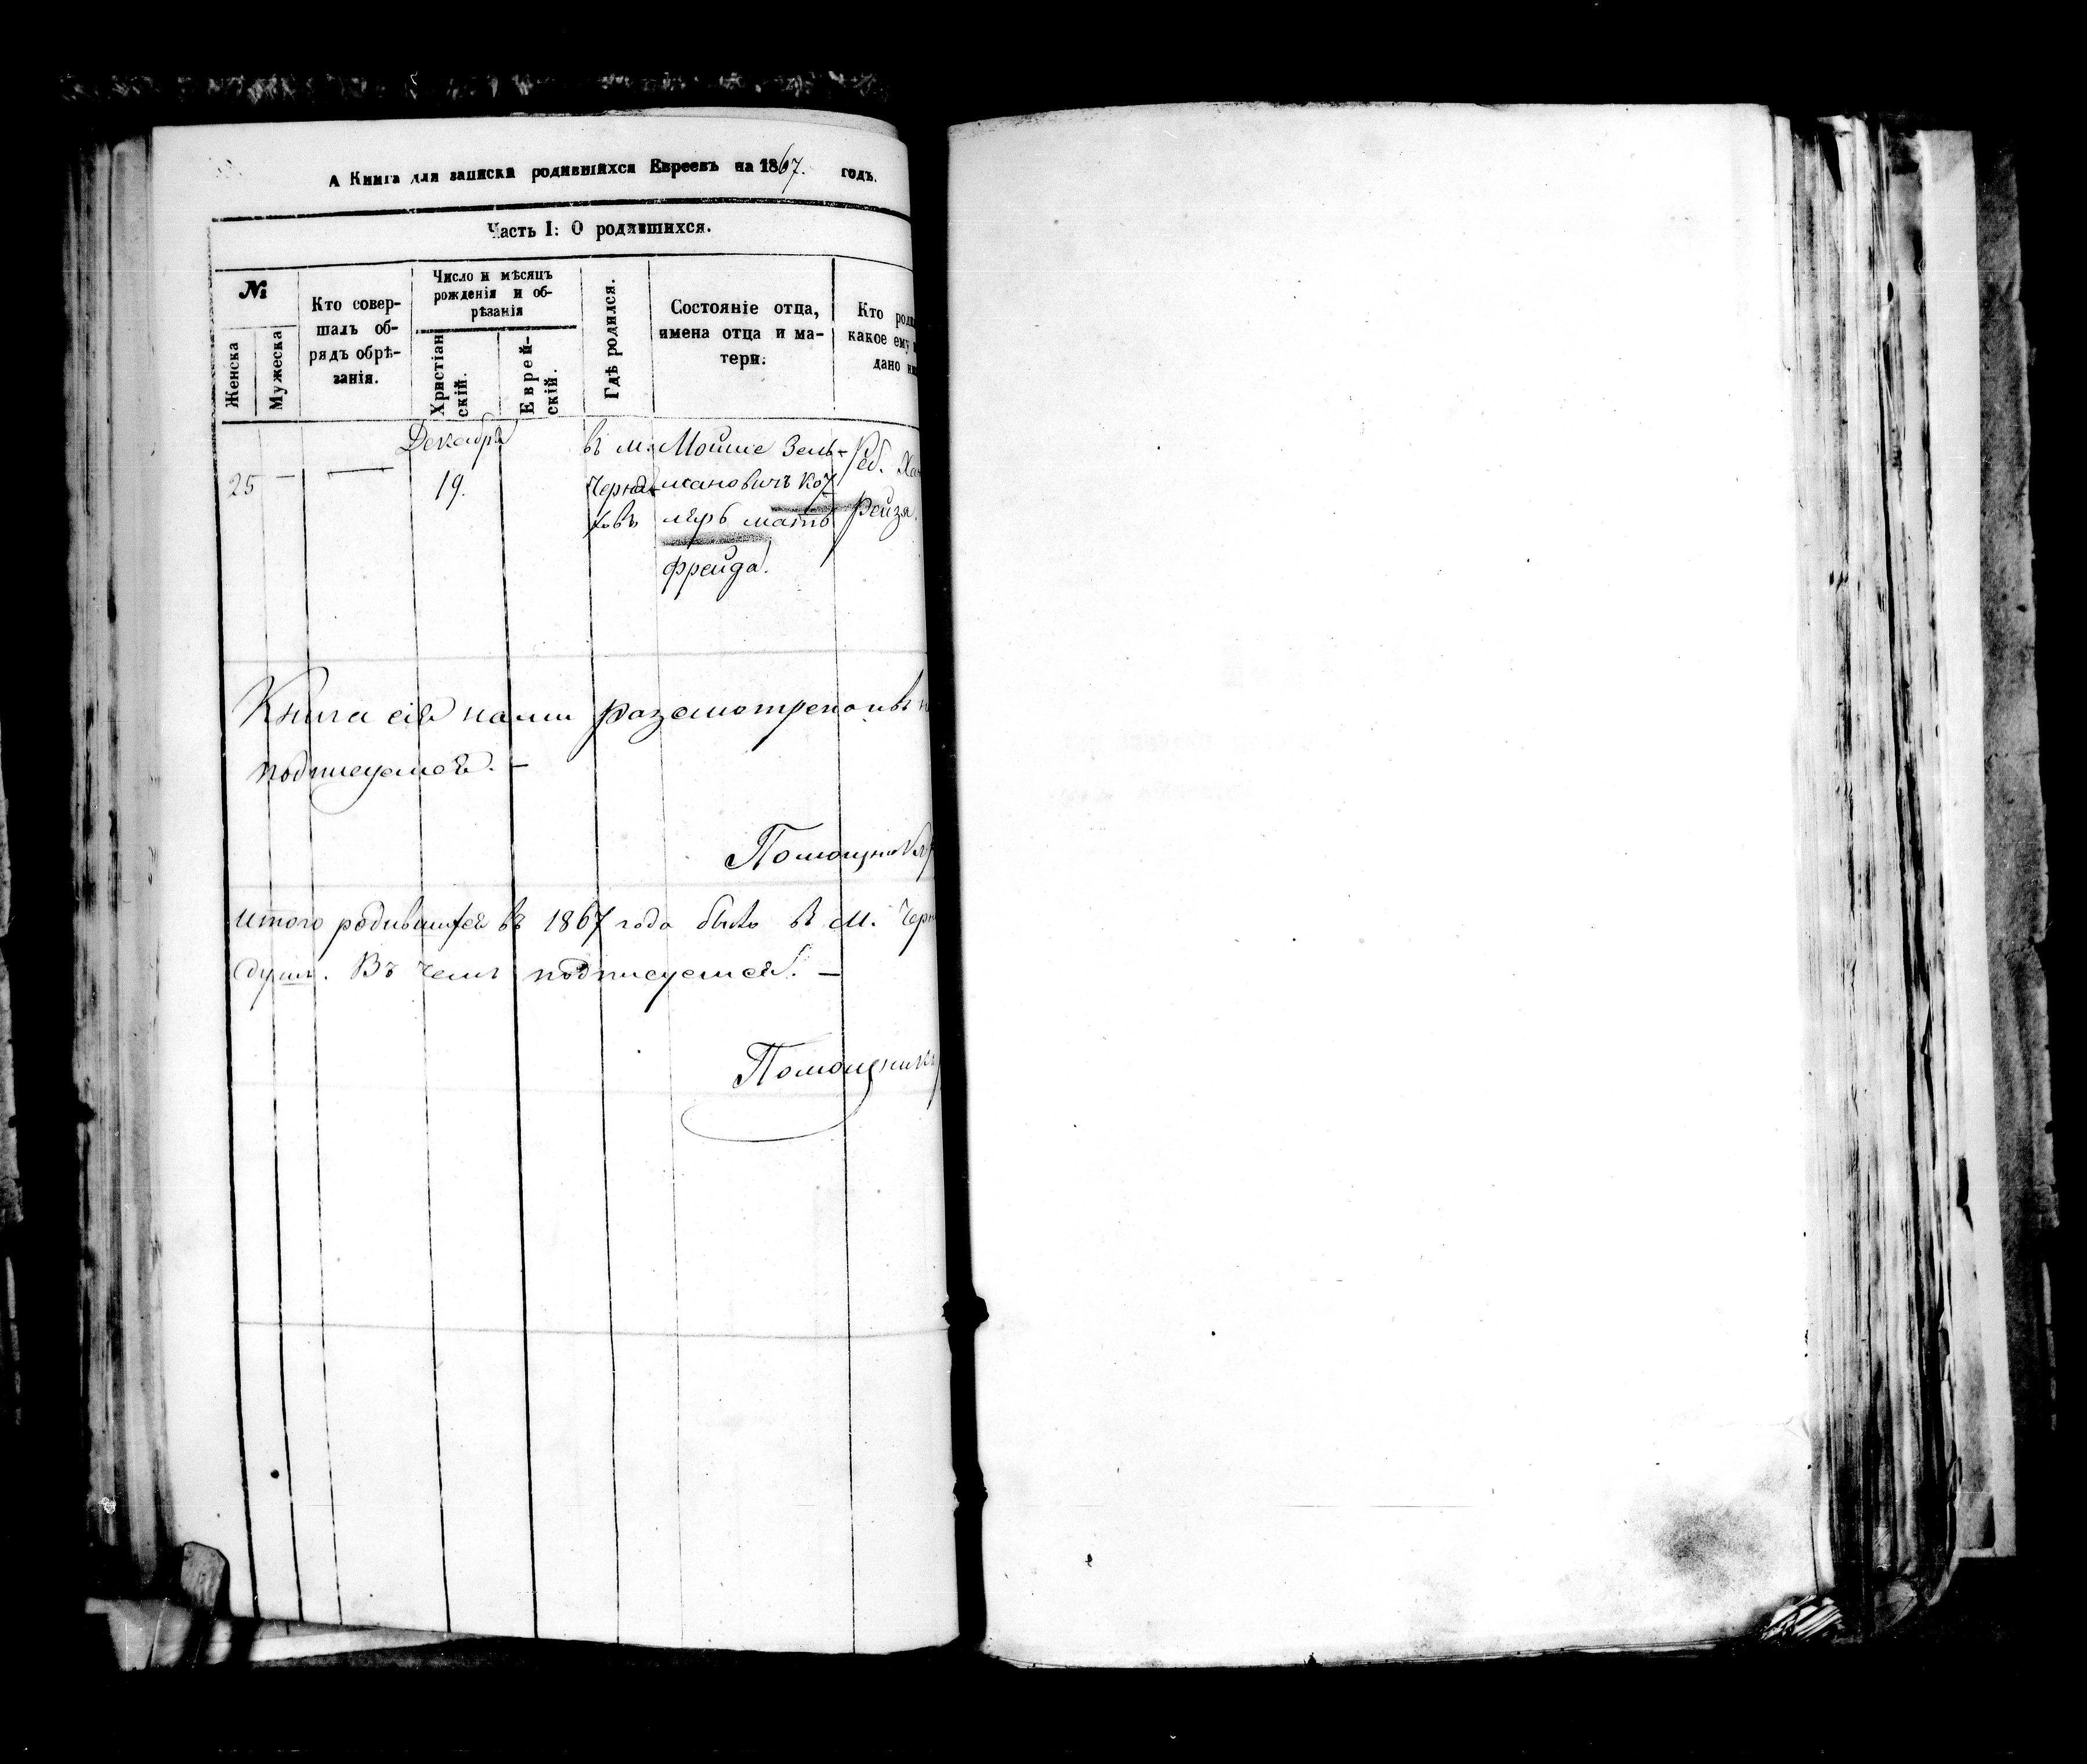 А Книга для записки родившихся Евреевъ на 1867. годъ.
Часть I: О родившихся.
№
Женска
Мужеска
Кто совер-
шалъ об-
рядъ обрѣ-
занія.
Число и мѣсяцъ
рожденія и об-
рѣзанія
Христіан
скій.
Еврей-
скій.
Гдѣ родился.
Состояніе отца,
имена отца и ма-
тери.
Кто
какое ему
дано
Декабря
25 — — 19.
въ м.
Мойше Зель-
мановичъ
мать
Фрейда.
Реб.
Рейзя.
Книга сія нами разсмотрена
подписуемся. —
Помощник
итого родившихся въ 1867 года было въ М.
душъ. Въ чемъ подписуемся. —
Помощникъ